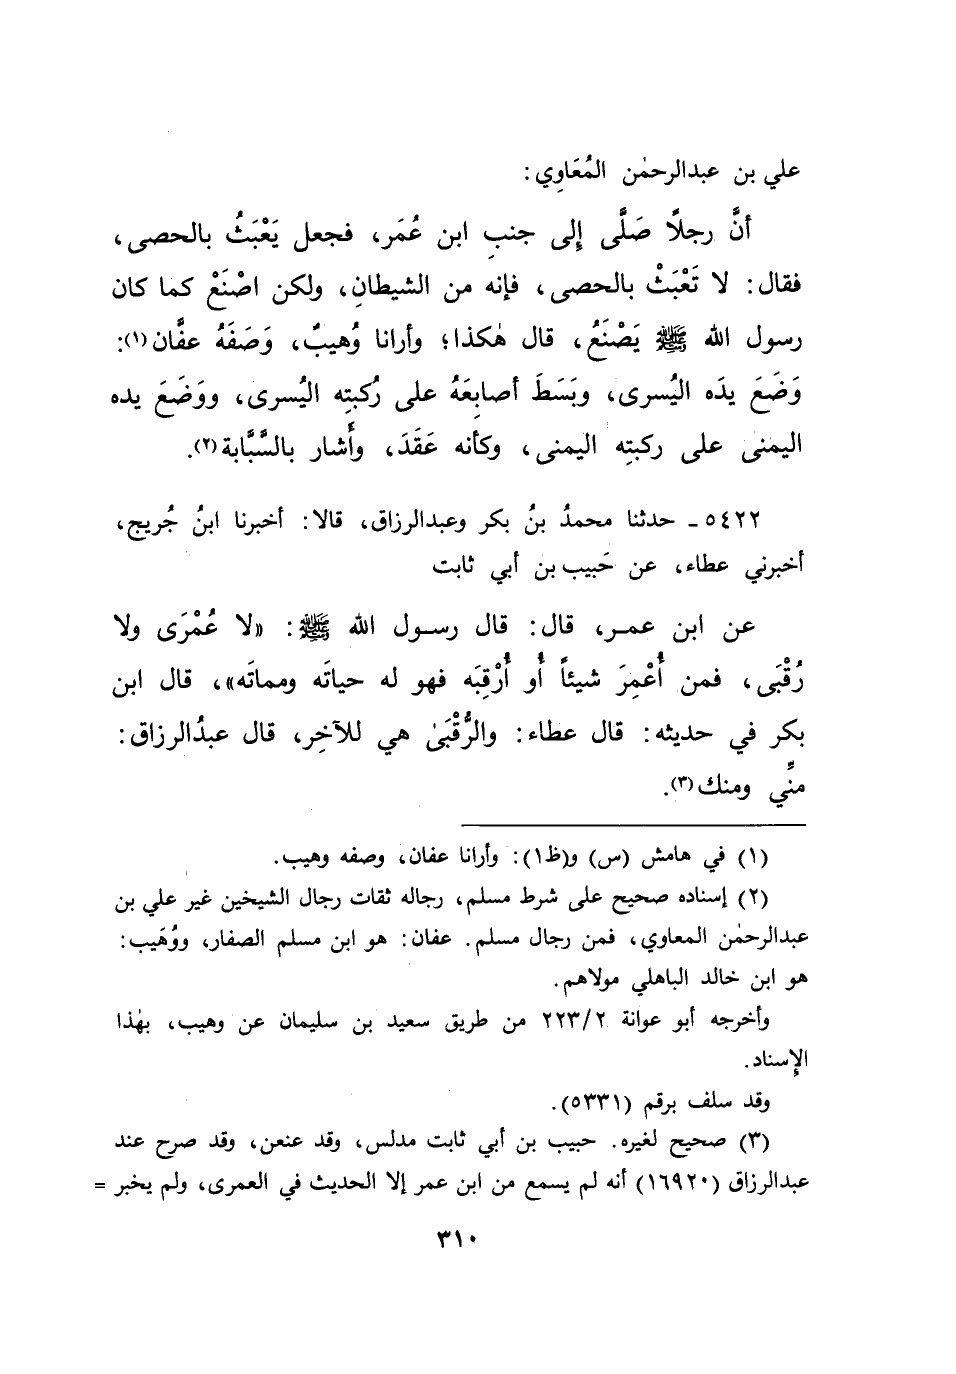 علي بن عبدالرحمٰن المُعَاوِي:
أنَّ رجلًا صَلَّى إلى جنبِ ابن عُمَر، فجعل يَعْبَثُ بالحصى،
فقال: لا تَعْبَثْ بالحصى، فإنه من الشيطانِ، ولكن اصْنَعْ كما كان
رسول الله ﷺ يَصْنَعُ، قال هٰكذا؛ وأرانا وُهيبٌ، وَصَفَهُ عفَّان(١):
وَضَعَ يدَه اليُسرى، وبَسَطَ أصابِعَهُ على رُكبتِه اليُسرى، ووَضَعَ يده
اليمنى على ركبتِه اليمنى، وكأنه عَقَدَ، وأَشار بالسَّبَّابة(٢).
٥٤٢٢ـ حدثنا محمدُ بنُ بكر وعبدالرزاق، قالا: أخبرنا ابنُ جُريج،
أخبرني عطاء، عن حَبيب بن أبي ثابت
عن ابن عمر، قال: قال رسول الله ﷺ: «لا عُمْرَى ولا
رُقْبَى، فمن أُعْمِرَ شيئاً أو أُرْقِبَه فهو له حياتَه ومماتَه»، قال ابن
بكر في حديثه: قال عطاء: والرُّقْبَىٰ هي للآخِر، قال عبدُالرزاق:
منِّي ومنك(٣).
(١) في هامش (س) و(ظ١): وأرانا عفان، وصفه وهيب.
(٢) إسناده صحيح على شرط مسلم، رجاله ثقات رجال الشيخين غير علي بن
عبدالرحمٰن المعاوي، فمن رجال مسلم. عفان: هو ابن مسلم الصفار، ووُهَيب:
هو ابن خالد الباهلي مولاهم.
وأخرجه أبو عوانة ٢٢٣/٢ من طريق سعيد بن سليمان عن وهيب، بهٰذا
الإِسناد.
وقد سلف برقم (٥٣٣١).
(٣) صحيح لغيره. حبيب بن أبي ثابت مدلس، وقد عنعن، وقد صرح عند
عبدالرزاق (١٦٩٢٠) أنه لم يسمع من ابن عمر إلا الحديث في العمرى، ولم يخبر =
٣١٠